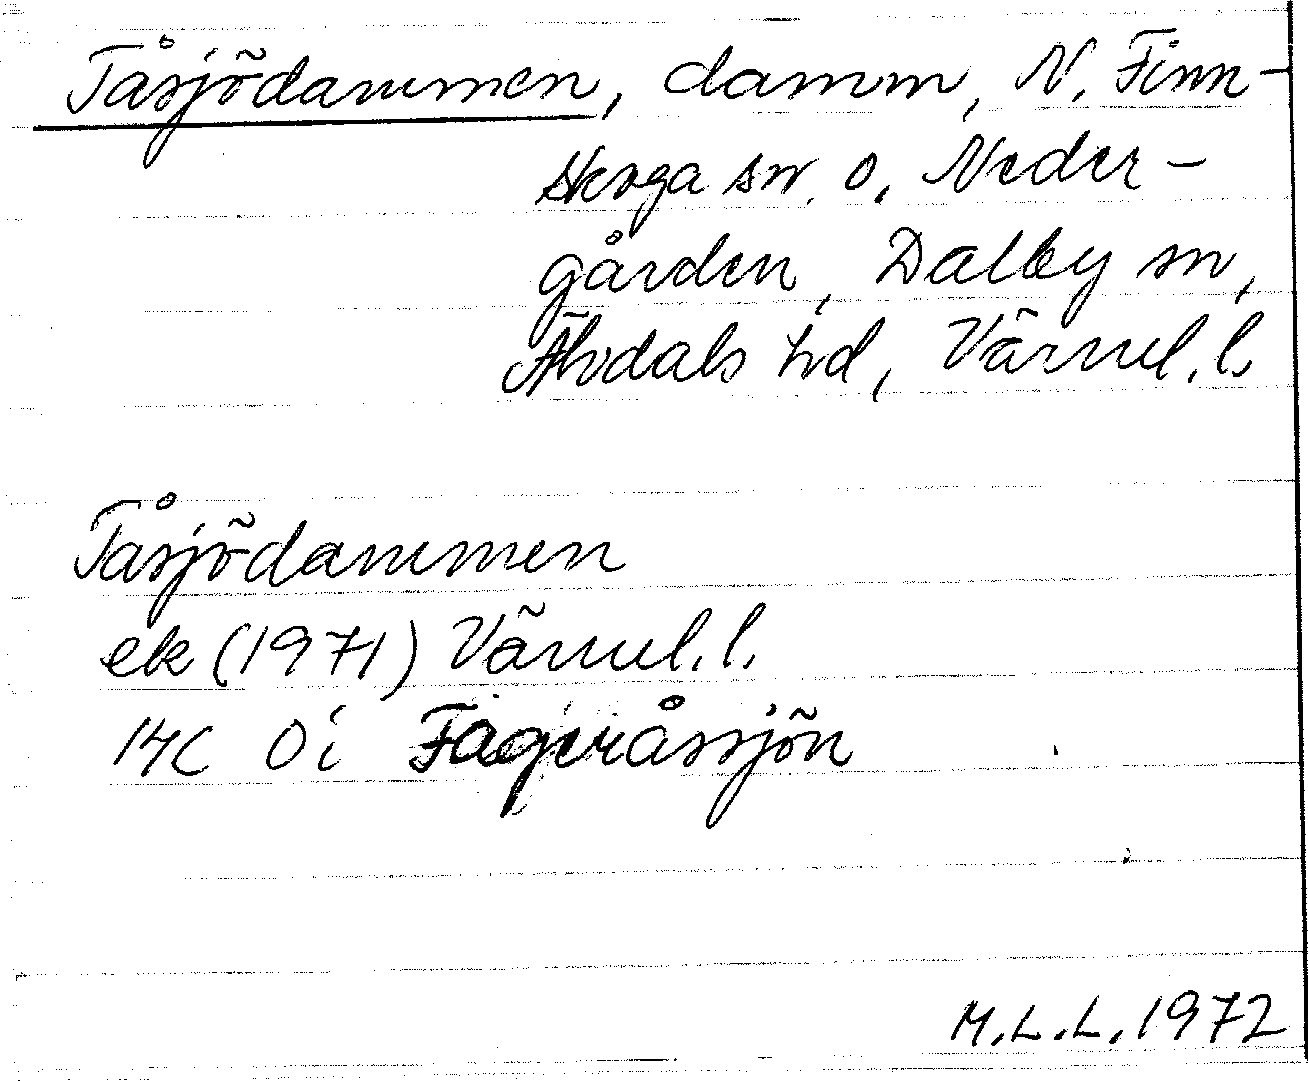 Tåsjödammen, damm, N. Finn-
skoga sn. o. Neder-
gården, Dalby sn,
Älvdals hd, Värml. l.
Tåsjödammen
ek (1971) Värml. l.
14C 0i Fageråssjön
M.L.L. 1972